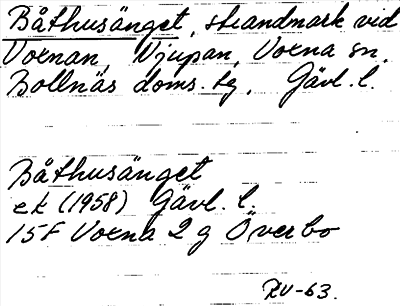 Båthusänget, strandmark vid
Voxnan, Njupan, Voxna sn.
Bollnäs doms. tg, Gävl. l.
Båthusänget
ek (1958) Gävl. l.
15F Voxna 2 g Överbo
RV-63.